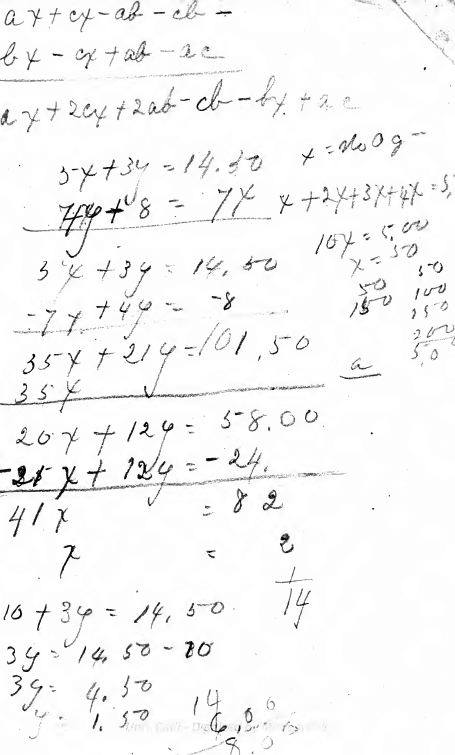 ax+cx-ab-cb-
bx-cx+ab-ac
ax+2cx+2ab-cb-bx+ac
5x+3y=14.50 x=No Og-
4y+8 = 7x x+2x+3x+4x=5.
10x=5.00
x=50
5x+3y=14.50
-7x+4y=-8
50 50
150 100
150
200
5.00
35x+21y=101.50
35x
a
20x+12y=58.00
-21x+12y=-24.
41x = 82
x = 2
1
14
10+3y=14.50
3y=14.50-10
3y=4.50
y=1.50
14
6.00
8.0